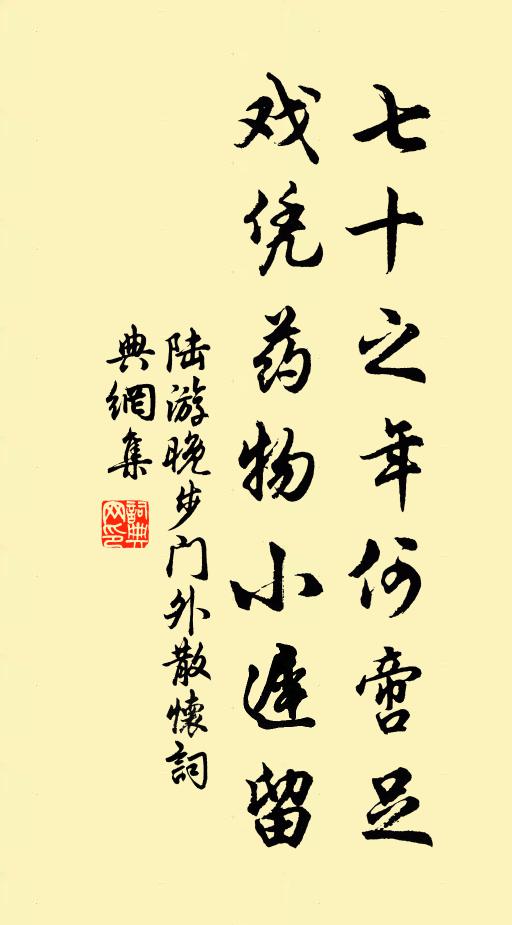 七十之年何啻足
戏凭药物小迟留
陆游晚步门外散懷詞
典網集
詞典
网印